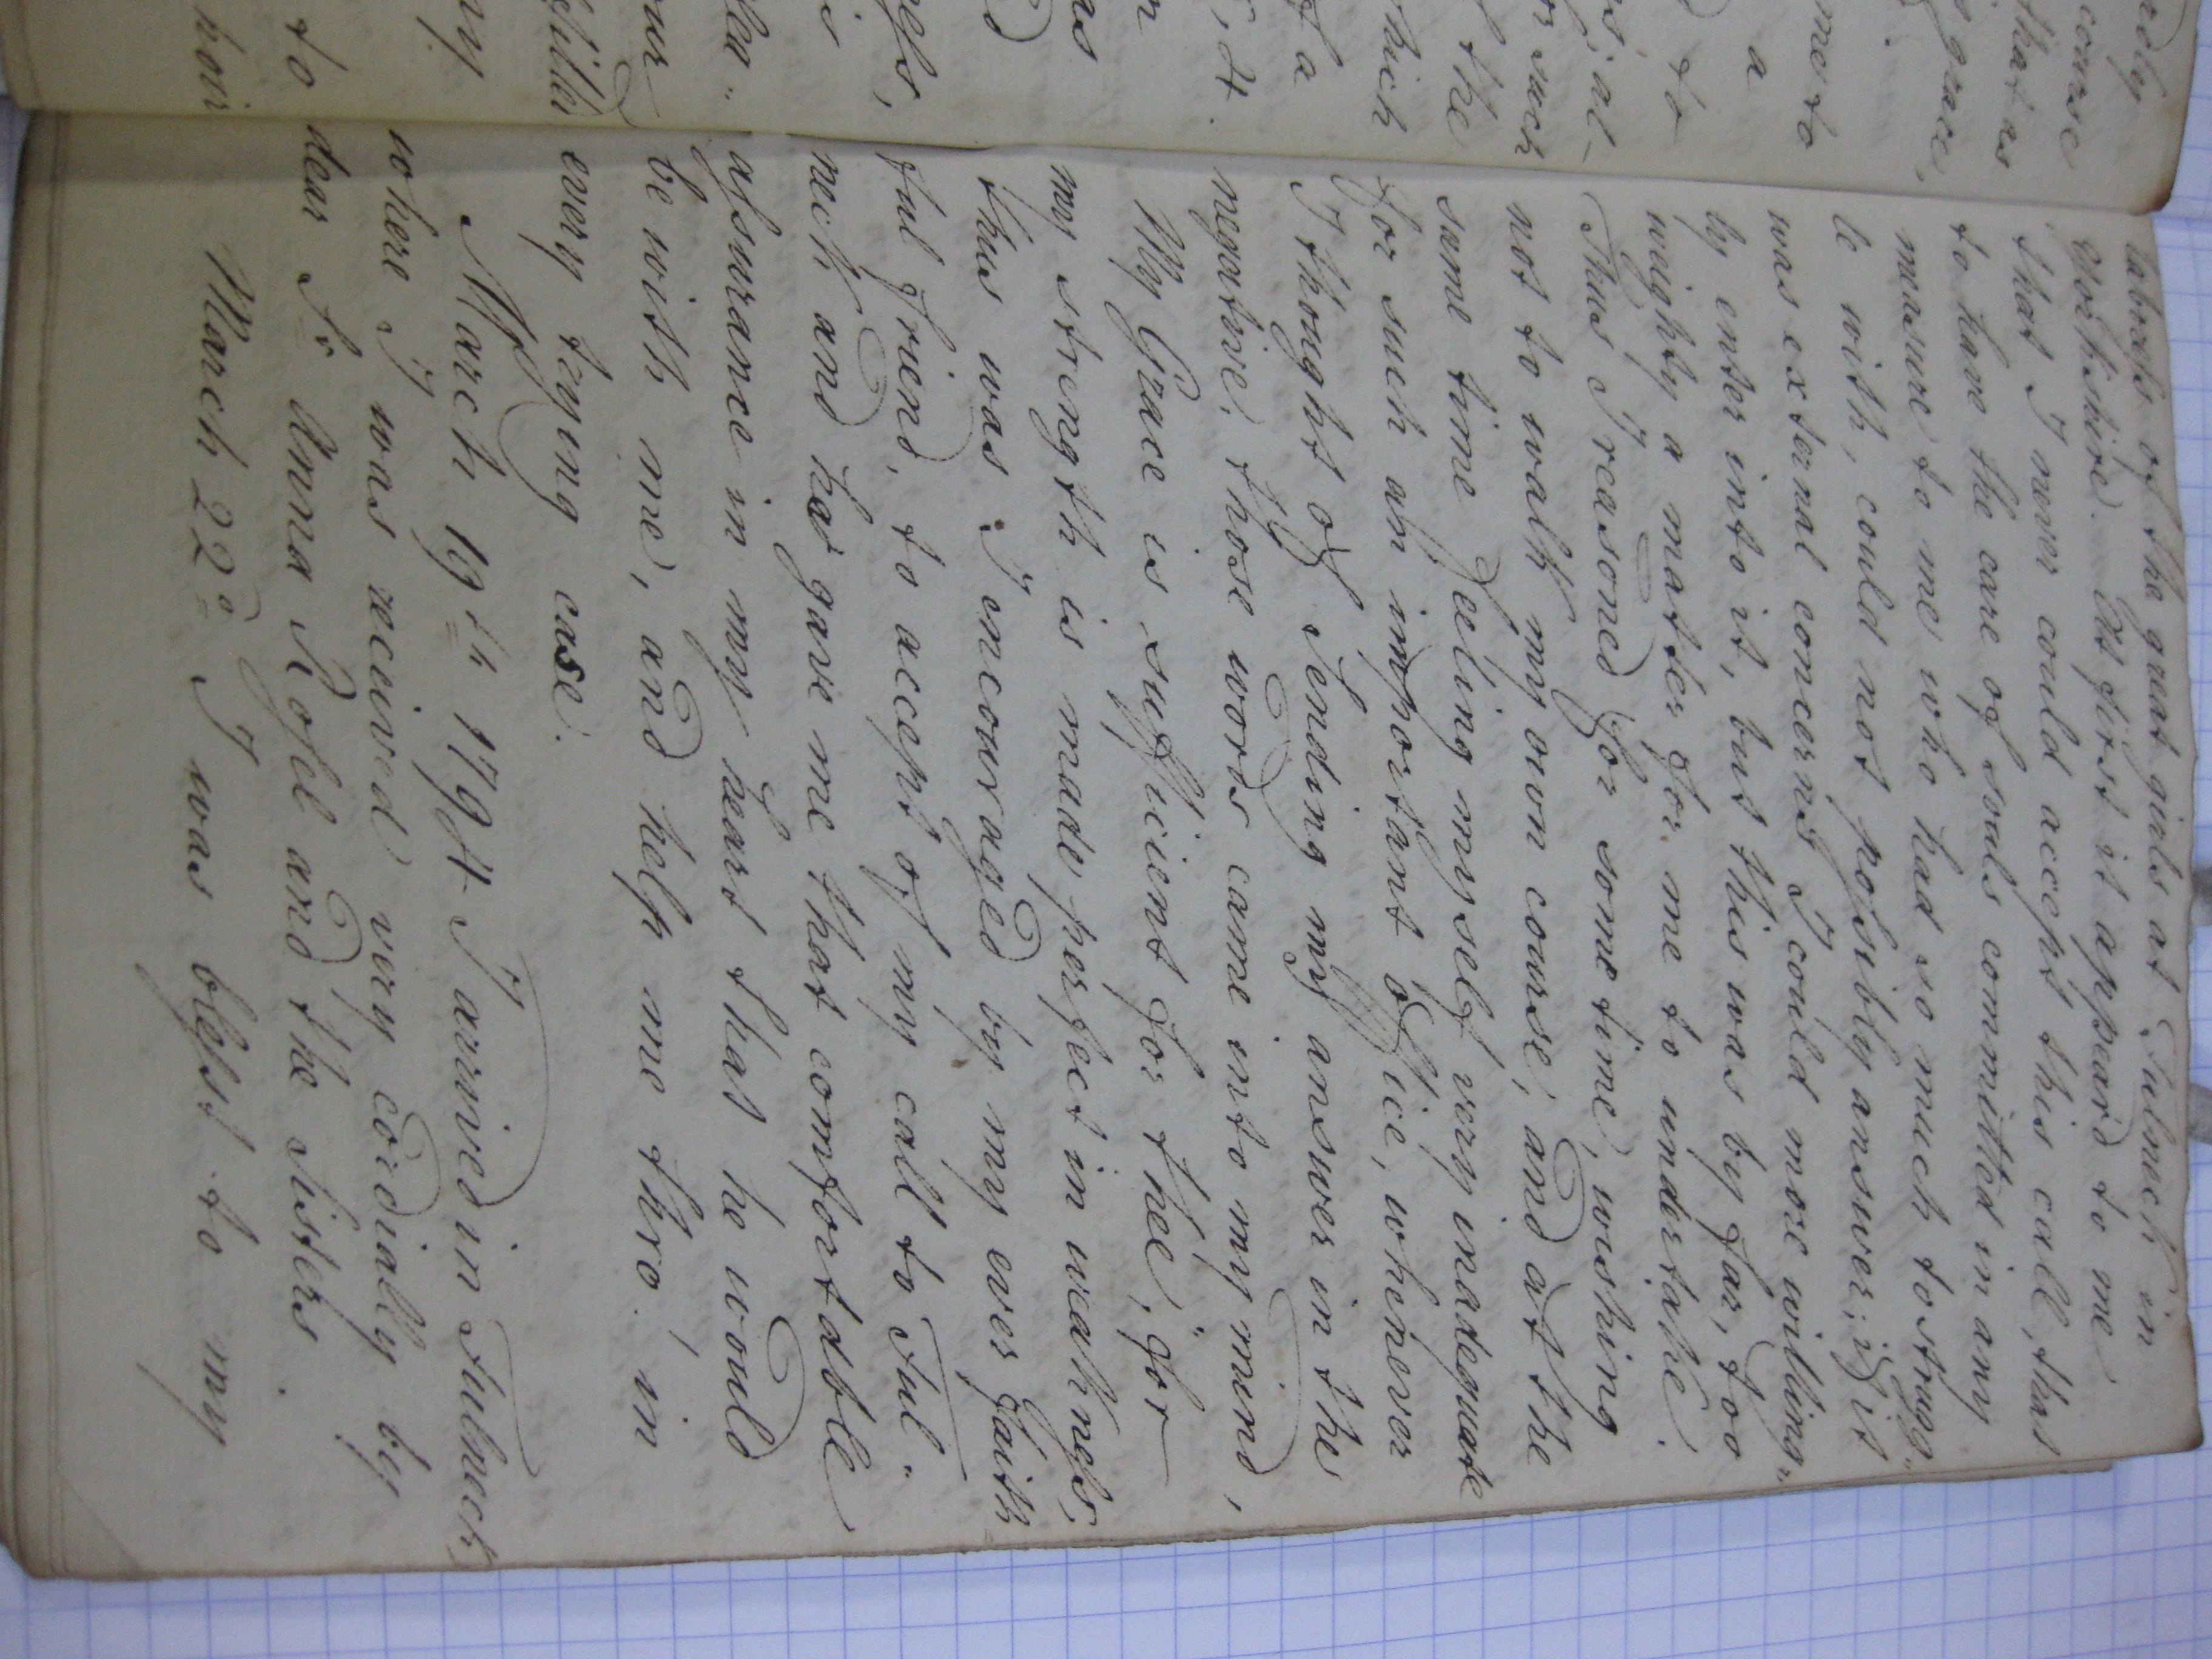 rdly
course
that as
grace,
me to
a
to
s; al-
or such
the
hich
f a
, 4.
n
as
ess,
is
lea„
our
filled
ny
to
hoir
labress of the great girls at Fulneck in
Yorkshire. At first it appear'd to me
that I never could accept this call, that
to have the care of souls committed in any
measure to me who had so much to strugg„
le with, could not possibly answer; if it
was external concerns I could more willing„
ly enter into it, but this was by far, too
weighty a matter for me to undertake.
Thus I reasoned for some time, wishing
not to walk my own course, and at the
same time feeling myself very inadequate
for such an important office, whenever
I thought of Sending my answer in the
negative, those words came into my mind,
My Grace is sufficient for thee," for
my strength is made perfect in weakness,
thus was I encouraged by my ever faith
ful friend, to accept of my call to Ful„
neck and he gave me that comfortable
assurance in my heart that he would
be with me, and help me thro' in
every trying case.
March 19th 1794 I arrived in Fulneck,
where I was received very cordially by
dear Sr Anna Rosel and the Sisters.
March 22d I was blesst to my